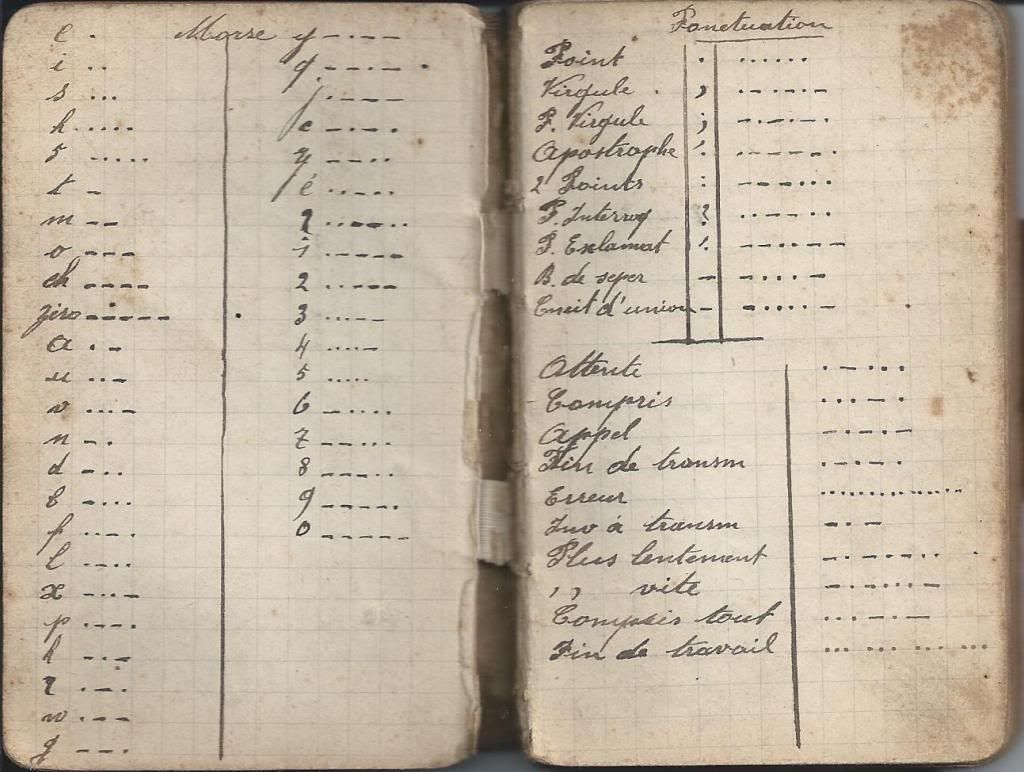 Morse
e .
i ..
s ...
h ....
5 .....
t -
m --
o ---
ch ----
zéro -----
a .-
u ..-
v ...-
n -.
d -..
b -...
f ..-.
l .-..
x -..-
p .--.
k -.-
r .-.
w .--
g --.
y -.--
q --.-
j .---
c -.-.
z --..
é ..-..
1 .----
2 ..---
3 ...--
4 ....-
5 .....
6 -....
7 --...
8 ---..
9 ----.
0 -----
Ponctuation
Point . ......
Virgule , .-.-.-
P. Virgule ; -.-.-.
Apostrophe ' .----.
2 Points : ---...
P. Interrog ? ..--..
P. Exlamat ! --..--
B. de seper -
Trait d'union - -....-
Attente .-...
Compris ...-.
Appel -.-.-
Fin de transm .-.-.
Erreur
Inv à transm -.-
Plus lentement
,, vite
Compris tout
Fin de travail